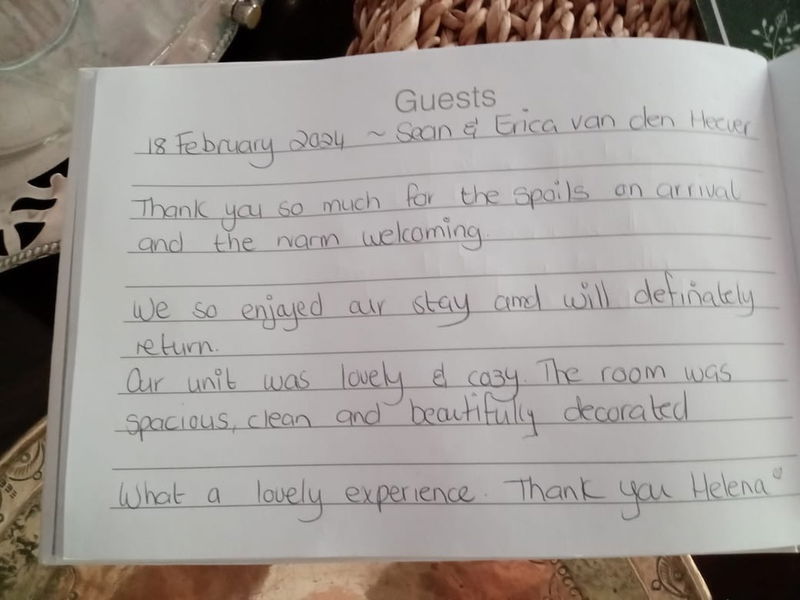 Guests
18 February 2024 ~ Sean & Erica van den Heever
Thank you so much for the spoils on arrival
and the warm welcoming.
We so enjoyed our stay and will definately
return.
Our unit was lovely & cozy. The room was
spacious, clean and beautifully decorated
What a lovely experience. Thank you Helena